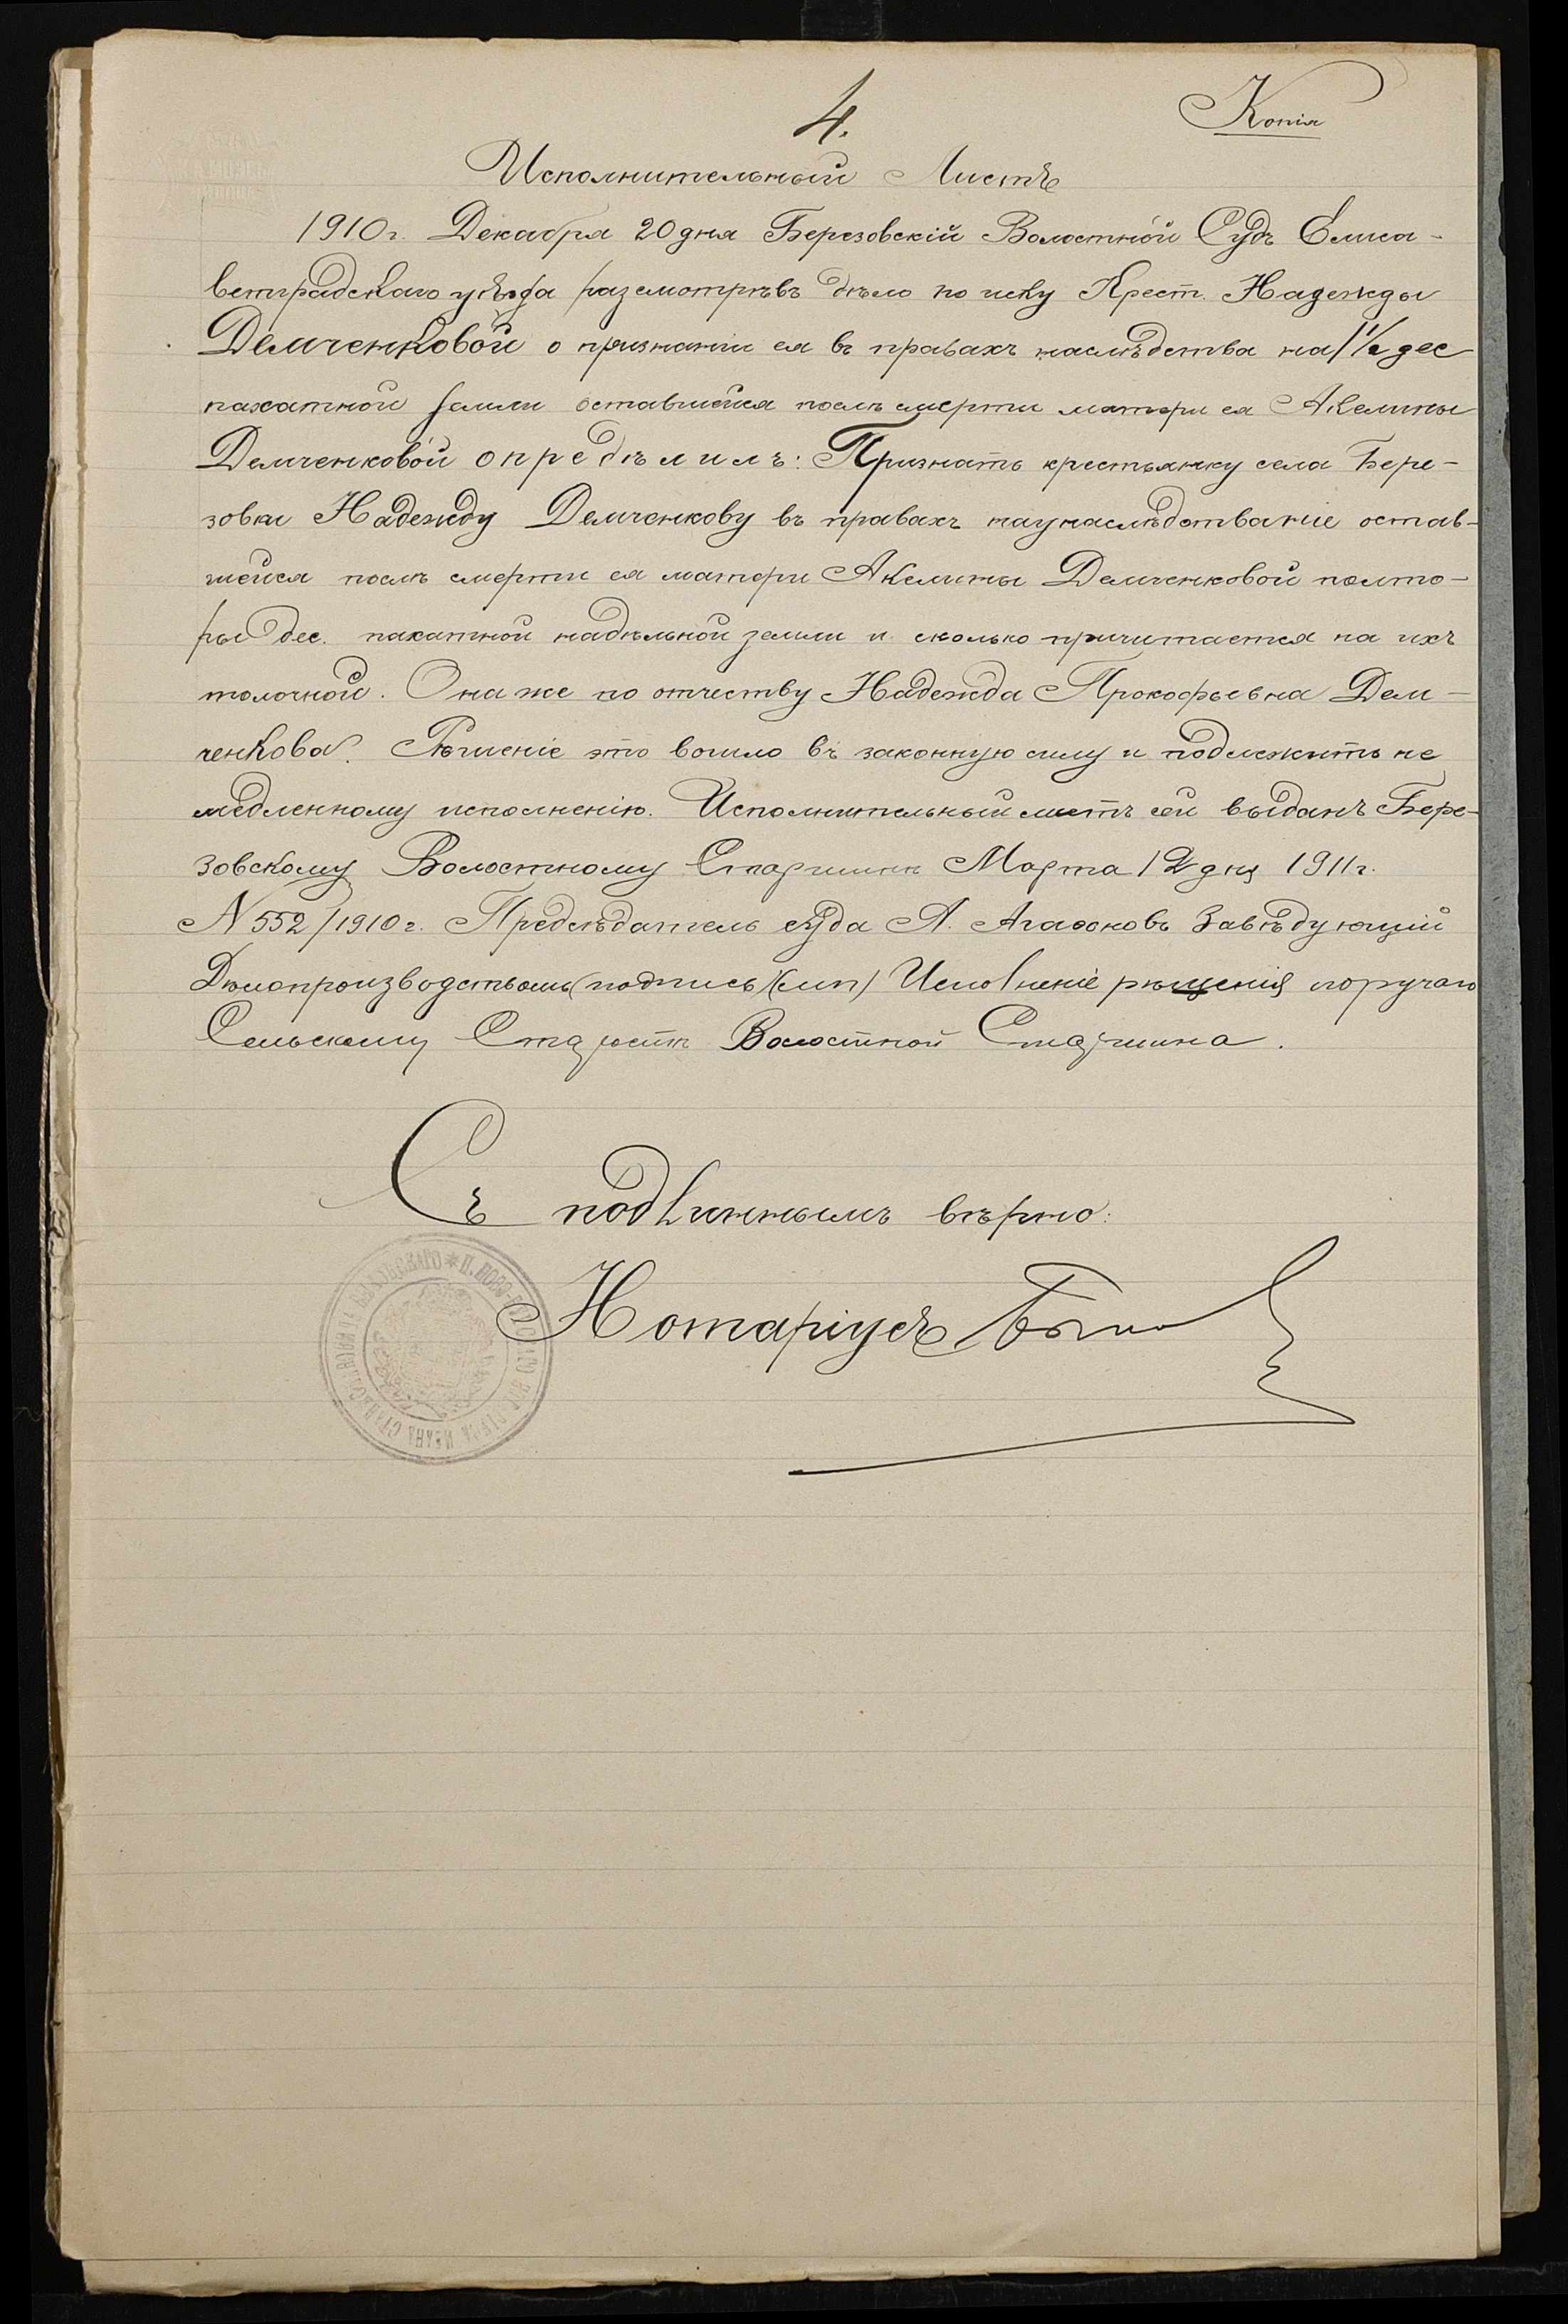 4.
Копія
Исполнительный Листъ
1910 г. Декабря 20 дня Березовскій Волостной Судъ Елиса-
ветградскаго уѣзда разсмотрѣвъ дѣло по иску Крест. Надежды
Демченковой о признаніи ея въ правахъ наслѣдства на 1 1/2 дес
пахатной земли оставшейся послѣ смерти матери ея Акелины
Демченковой опредѣлилъ: Признать крестьянку села Бере-
зовки Надежду Демченкову въ правахъ наунаслѣдованіе остав-
шейся послѣ смерти ея матери Акелины Демченковой полто-
ры дес. пахатной надѣльной земли и сколько причитается на ихъ
толочной. Она же по отчеству Надежда Прокофьевна Дем-
ченкова. Рѣшеніе это вошло въ законную силу и подлежитъ не
медленному исполненію. Исполнительный листъ сей выданъ Бере-
зовскому Волостному Старшинѣ Марта 12 дня 1911 г.
N 552/1910 г. Предсѣдатель суда А. Агаѳоновъ Завѣдующій
Дѣлопроизводствомъ (подпись) (мп) Исполненіе рѣшенія поручаю
Сельскому Старостѣ Волостной Старшина.
Съ подлиннымъ вѣрно:
Нотаріусъ